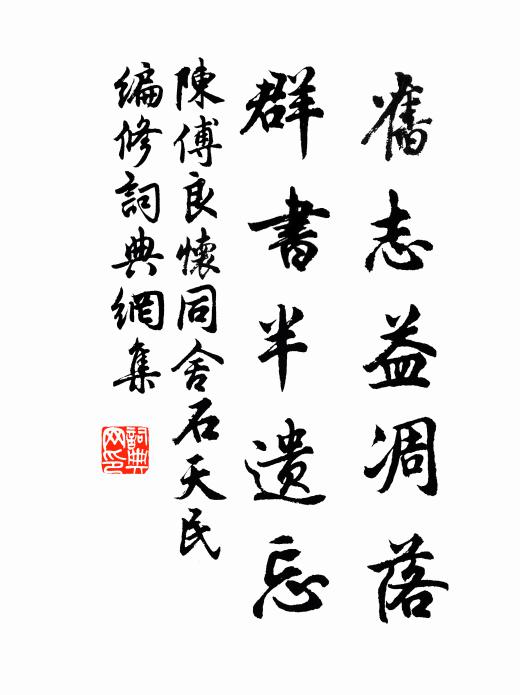 舊志益凋落
群書半遺忘
陳傅良懷同舍石天民
編修詞典網集
詞典网印